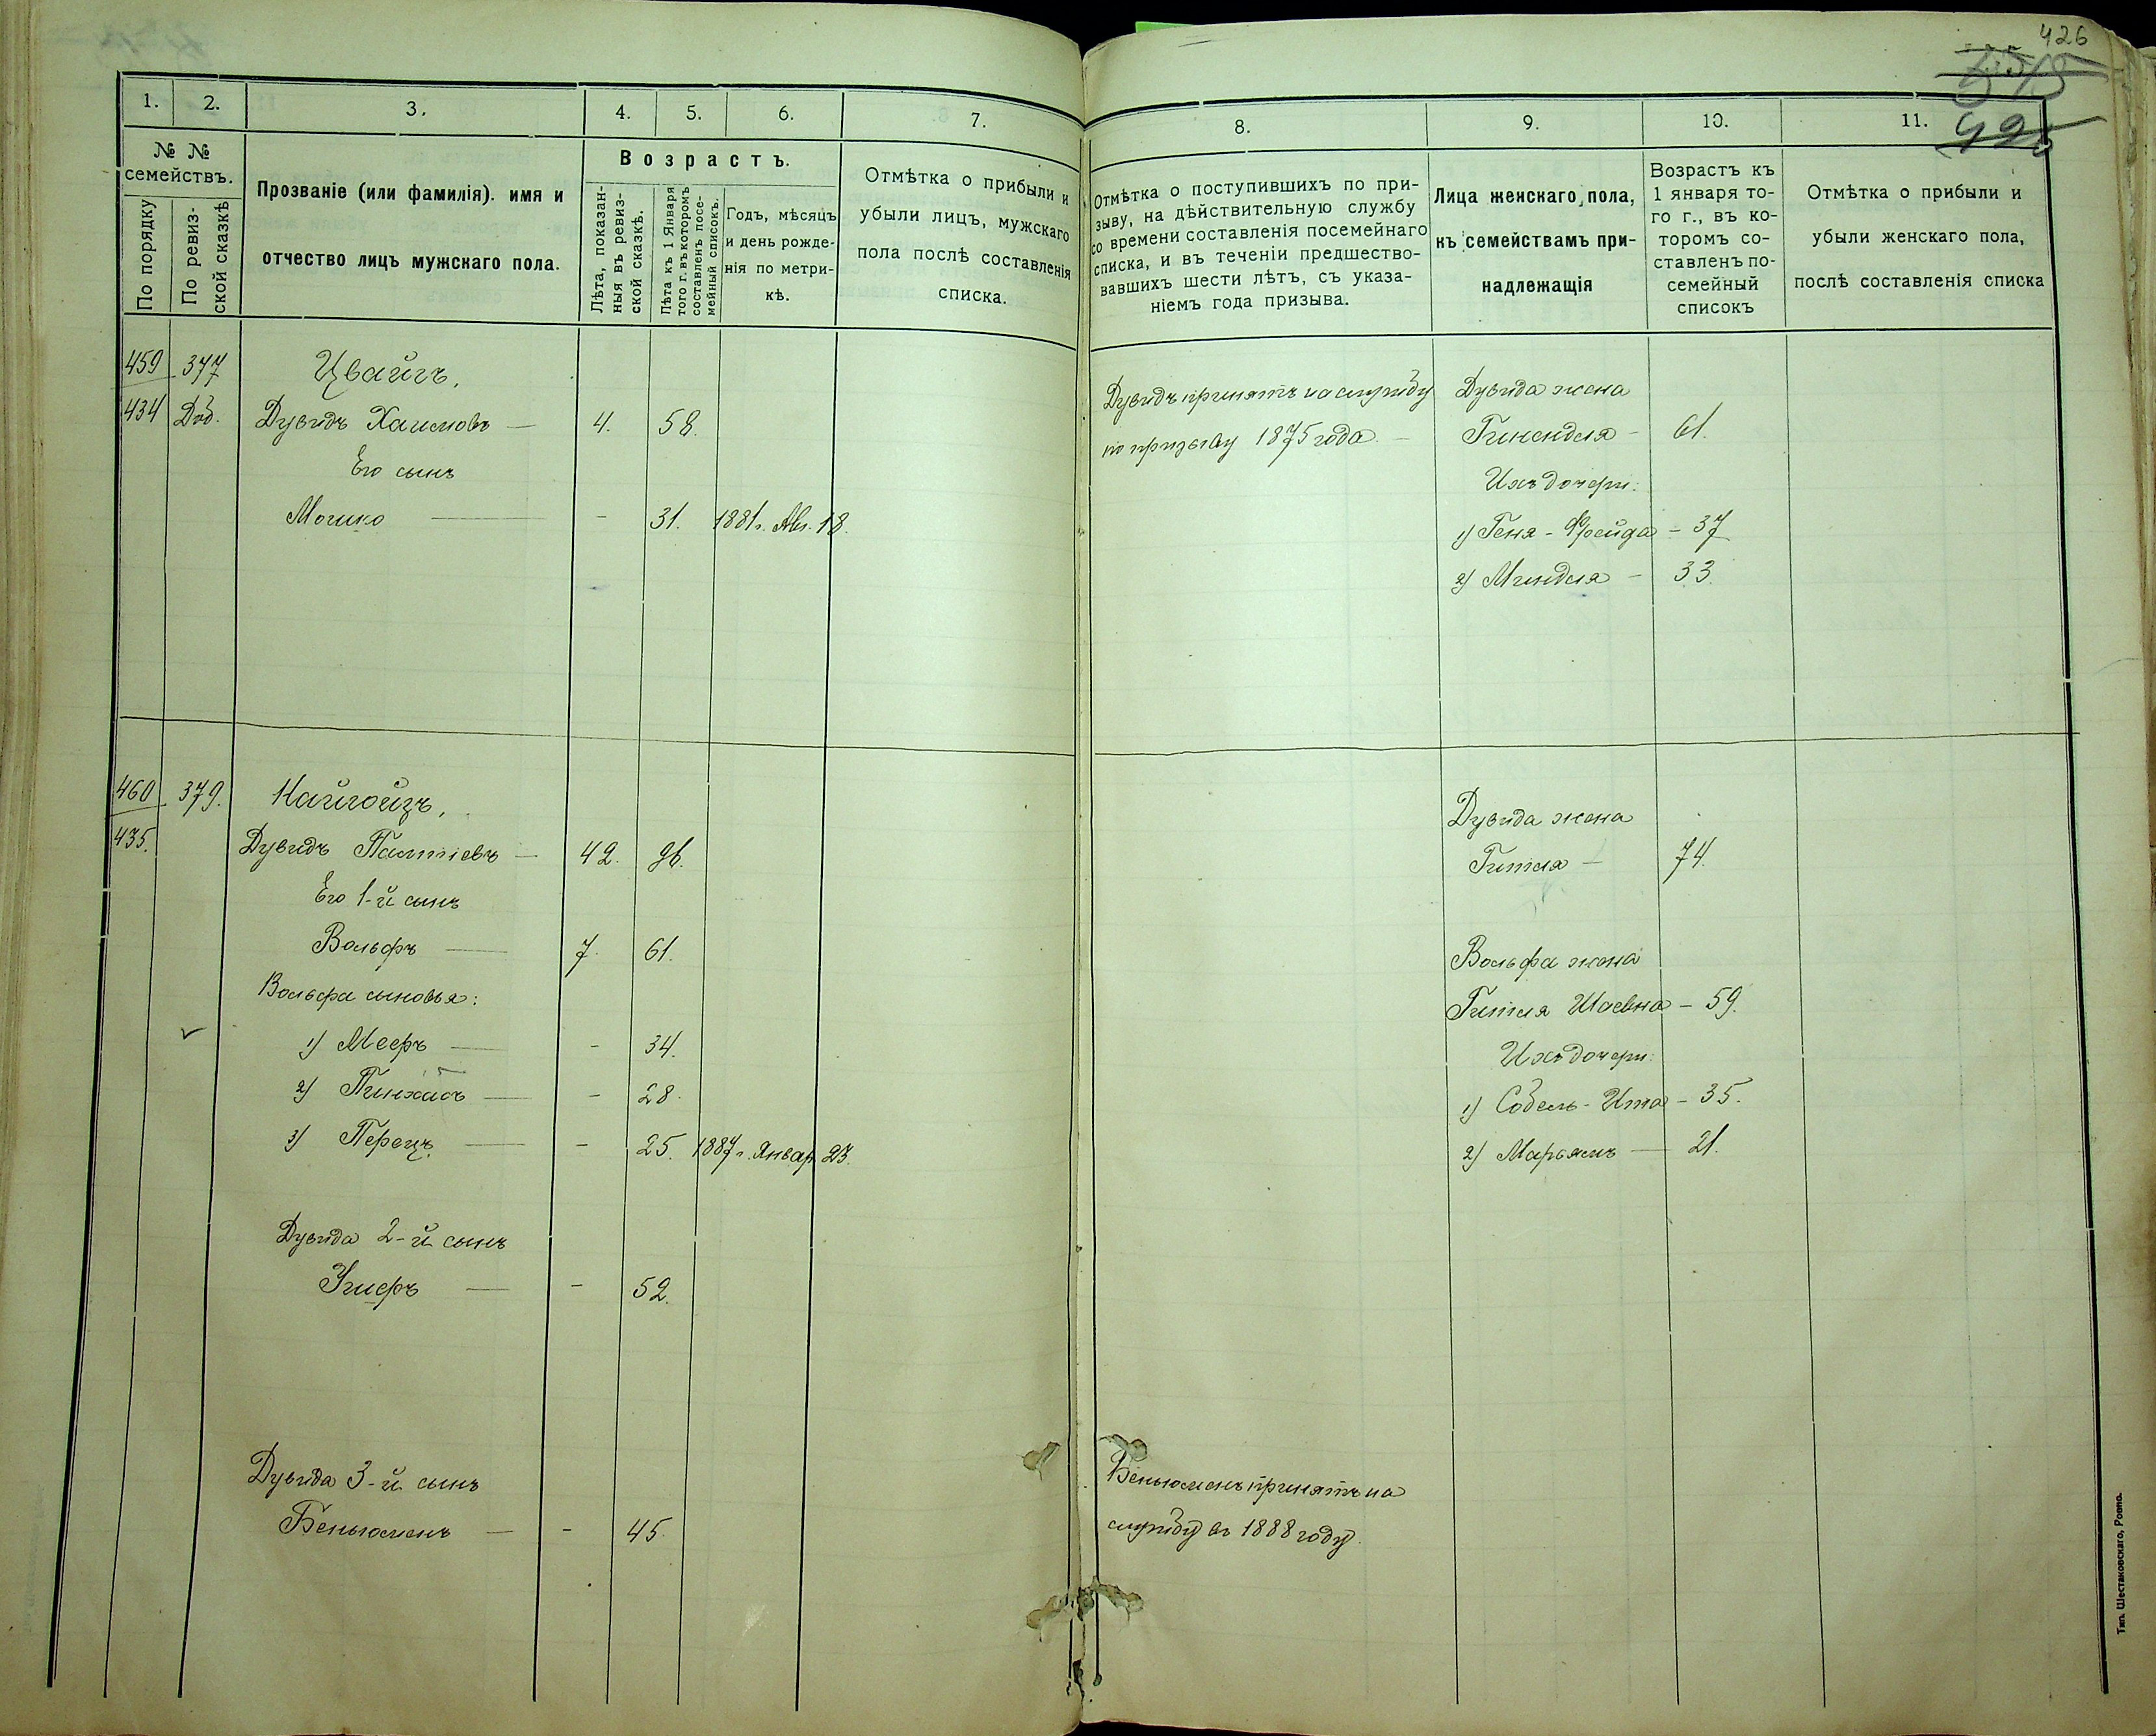 426
1. 2. 3. 4. 5. 6. 7.
№ №
семействъ.
По порядку
По ревиз-
ской сказкѣ
Прозваніе (или фамилія). имя и
отчество лицъ мужскаго пола.
Возрастъ.
Лѣта, показан-
ныя въ ревиз-
ской сказкѣ.
Лѣта къ 1 Января
того г. въ которомъ
составленъ посе-
мейный списокъ.
Годъ, мѣсяцъ
и день рожде-
нія по метри-
кѣ.
Отмѣтка о прибыли и
убыли лицъ, мужскаго
пола послѣ составленія
списка.
459 377 Цвайгъ.
434 Доб. Дувидъ Хаимовъ — 4. 58.
Его сынъ
Мошко — - 31. 1881 г. Авг. 18.
460 379. Найгойзъ.
435. Дувидъ Палтіевъ — 42. 96.
Его 1-й сынъ
Вольфъ — 7. 61.
Вольфа сыновья:
1) Мееръ — - 34.
2) Пинхасъ — - 28.
3) Перецъ — - 25. 1887 г. Январ. 23.
Дувида 2-й сынъ
— - 52.
Дувида 3-й сынъ
Беньюменъ — - 45.
8. 9. 10. 11.
Отмѣтка о поступившихъ по при-
зыву, на дѣйствительную службу
со времени составленія посемейнаго
списка, и въ теченіи предшество-
вавшихъ шести лѣтъ, съ указа-
ніемъ года призыва.
Лица женскаго пола,
къ семействамъ при-
надлежащія
Возрастъ къ
1 января то-
го г., въ ко-
торомъ со-
ставленъ по-
семейный
списокъ
Отмѣтка о прибыли и
убыли женскаго пола,
послѣ составленія списка
Дувидъ принятъ на службу
по призыву 1875 года. —
Дувида жена
Гинендля - 61.
Ихъ дочери:
1) Геня - Фрейда - 37
2) Миндля - 33.
Дувида жена
Гитля — 74.
Вольфа жена
Гитля Шаевна - 59.
Ихъ дочери:
1) Собель - Ита - 35.
2) Марьямъ — 21.
Беньюменъ принятъ на
службу въ 1888 году.
Тип. Шестаковскаго, Ровно.